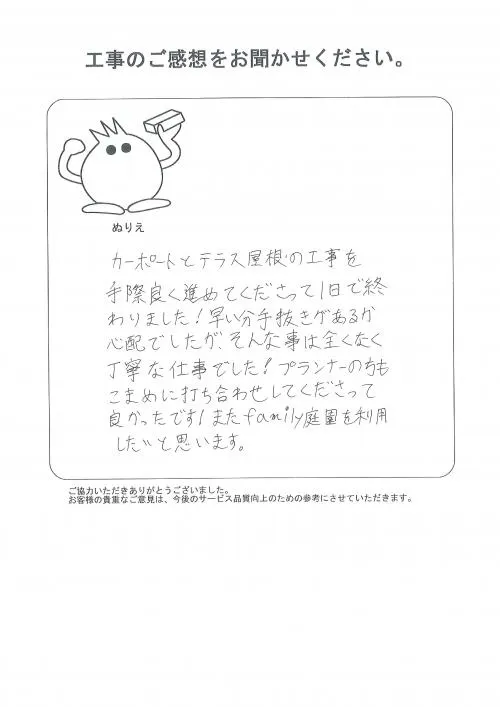 工事のご感想をお聞かせください。
ぬりえ
カーポートとテラス屋根の工事を
手際良く進めてくださって1日で終
わりました!早い分手抜きがあるか
心配でしたが、そんな事は全くなく
丁寧な仕事でした!プランナーの方も
こまめに打ち合わせしてくださって
良かったです!またfamily庭園を利用
したいと思います。
ご協力いただきありがとうございました。
お客様の貴重なご意見は、今後のサービス品質向上のための参考にさせていただきます。